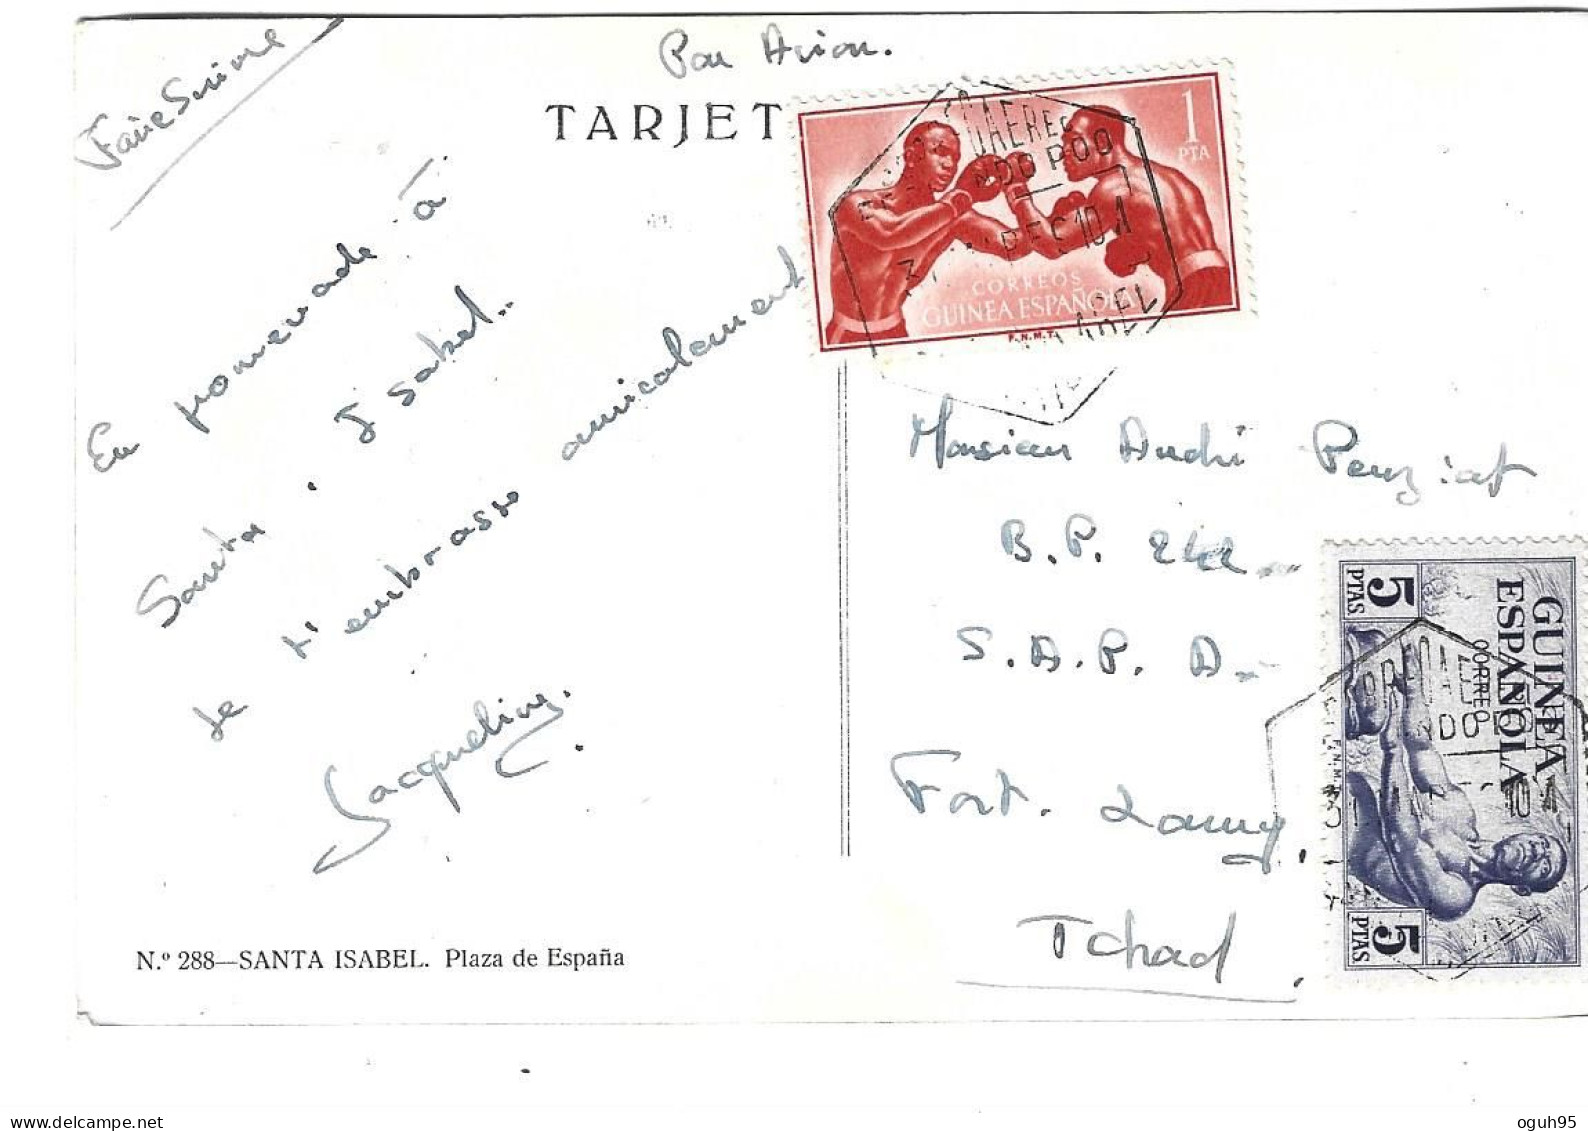 Faire Suivre
Par Avion.
TARJET
En promenade à
Santa Isabel..
Je t'embrasse amicalement
Jacqueline.
N.º 288—SANTA ISABEL. Plaza de España
1
PTA
CORREOS
GUINEA ESPAÑOLA
F.N.M.T.
AEREO
NDO POO
DEC 10 A
ABEL
Monsieur André
B.P.
S.A.P. A
Fort. Lamy.
Tchad.
GUINEA
ESPAÑOLA
CORREO
5
PTAS
5
PTAS
NDO
oguh95